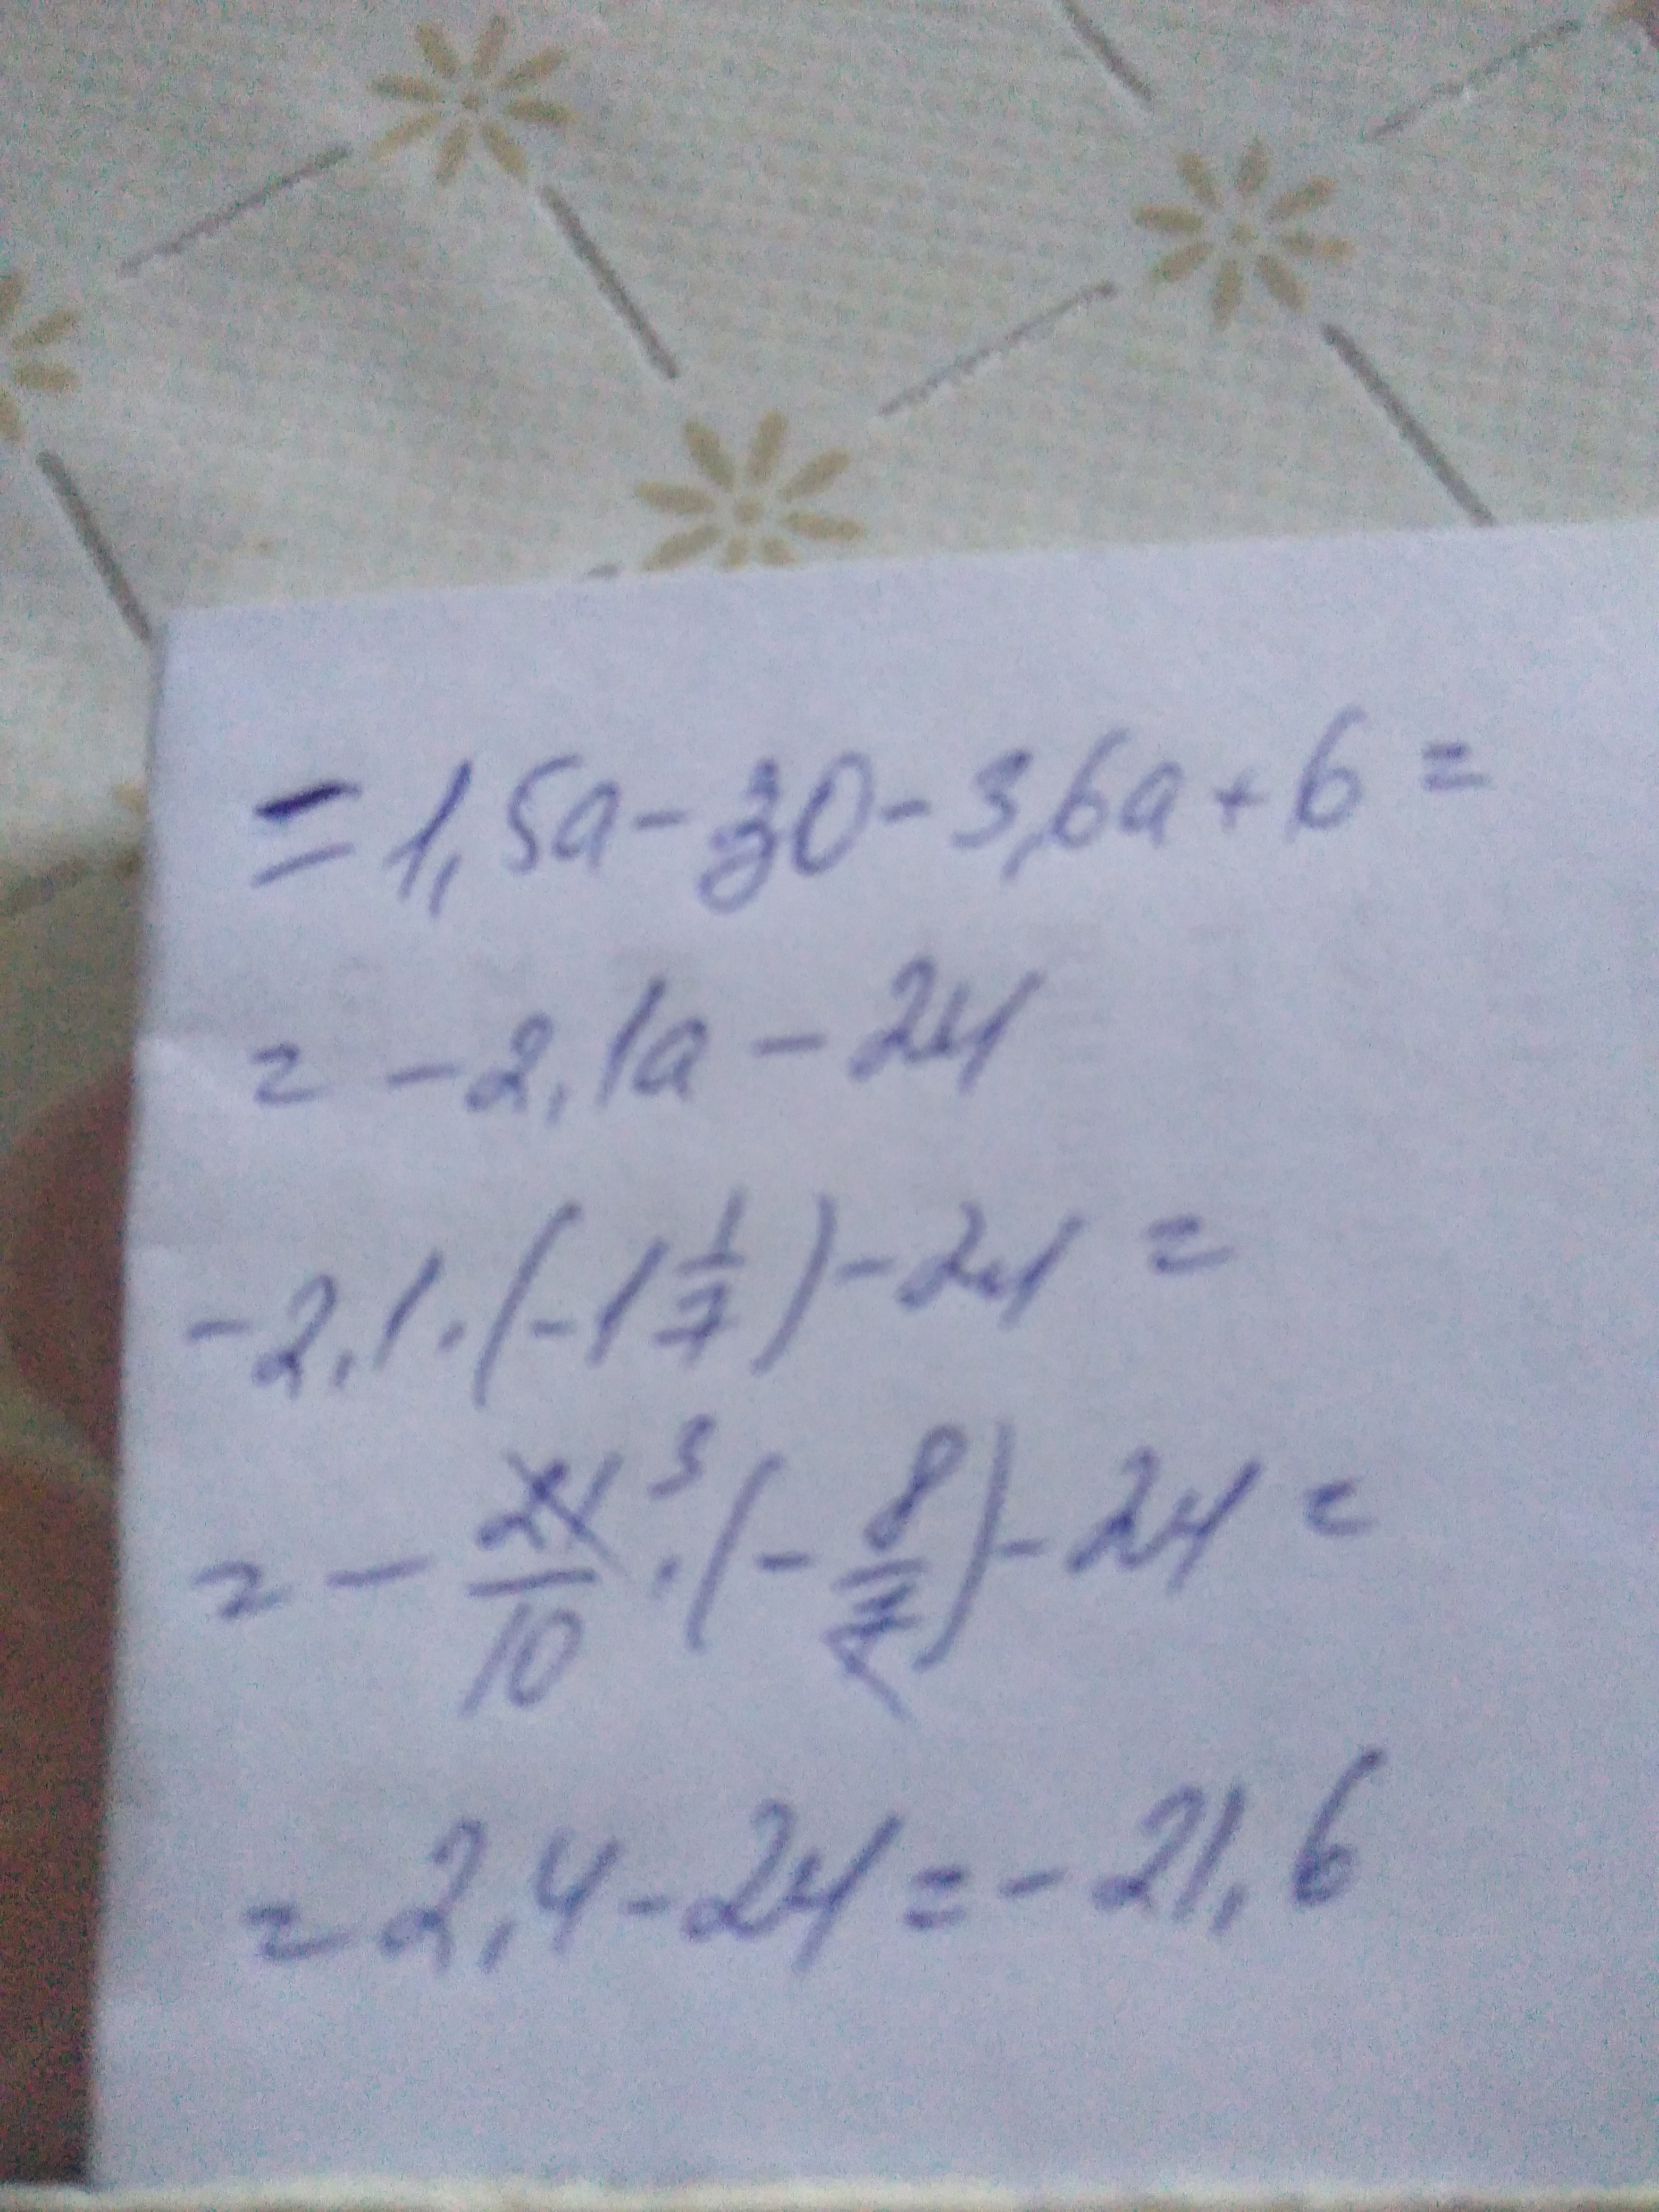 = 1,5a - 30 - 3,6a + 6 =
= - 2,1a - 24
- 2,1 · (- 1 1/7) - 24 =
= - 21/10 3 · (- 8/7) - 24 =
= 2,4 - 24 = - 21,6